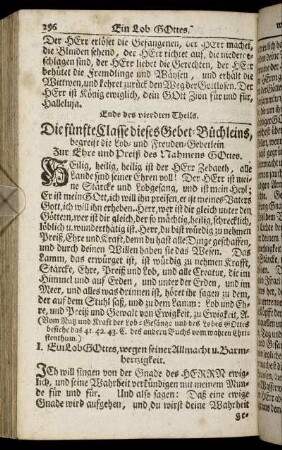 296 Ein Lob GOttes.
Der HErr erlöset die Gefangenen, der HErr machet,
die Blinden sehend, der HErr richtet auf, die niederge-
schlagen sind, der HErr liebet die Gerechten, der HErr
behütet die Fremdlinge und Wäysen, und erhält die
Wittwen, und kehret zurück den Weg der Gottlosen. Der
HErr ist König ewiglich, dein GOtt Zion für und für,
Halleluja.
Ende des vierdten Theils.
Die fünfte Classe dieses Gebet-Büchleins,
begreift die Lob- und Freuden-Gebetlein
Zur Ehre und Preiß des Nahmens GOttes.
Heilig, heilig, heilig ist der HErr Zebaoth, alle
Lande sind seiner Ehren voll! Der HErr ist mei-
ne Stärcke und Lobgesang, und ist mein Heyl;
Er ist mein GOtt, ich will ihn preisen, er ist meines Vaters
Gott, ich will ihn erheben. Herr, wer ist dir gleich unter den
Göttern, wer ist dir gleich, der so mächtig, heilig, schrecklich,
löblich u. wunderthätig ist. Herr, du bist würdig zu nehmen
Preiß, Ehre und Kraft, denn du hast alle Dinge geschaffen,
und durch deinen Willen haben sie das Wesen. Das
Lamm, das erwürget ist, ist würdig zu nehmen Kraft,
Stärcke, Ehre, Preiß und Lob, und alle Creatur, die im
Himmel und auf Erden, und unter der Erden, und im
Meer, und alles was drinnen ist, höret ihr sagen zu dem,
der auf dem Stuhl saß, und zu dem Lamm: Lob und Eh-
re, und Preiß und Gewalt von Ewigkeit, zu Ewigkeit, A.
(Vom Nutz und Kraft der Lob-Gesänge und des Lobes GOttes
besiehe das 41. 42. 43. C. des andern Buchs vom wahren Chri-
stenthum.)
1. Ein Lob GOttes, wegen seiner Allmacht u. Barm-
hertzigkeit.
Ich will singen von der Gnade des HERRN ewig-
lich, und seine Wahrheit verkündigen mit meinem Mun-
de für und für. Und also sagen: Daß eine ewige
Gnade wird aufgehen, und du wirst deine Wahrheit
ge-